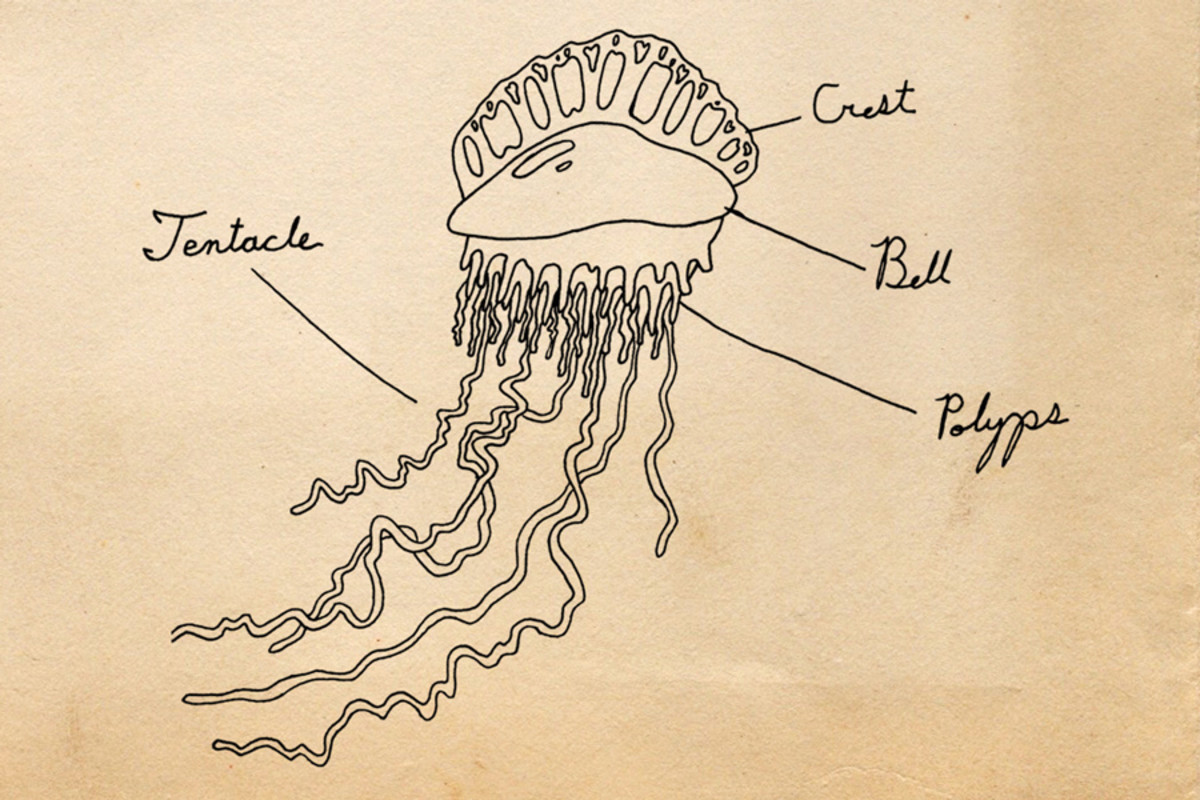 Crest
Tentacle
Bell
Polyps